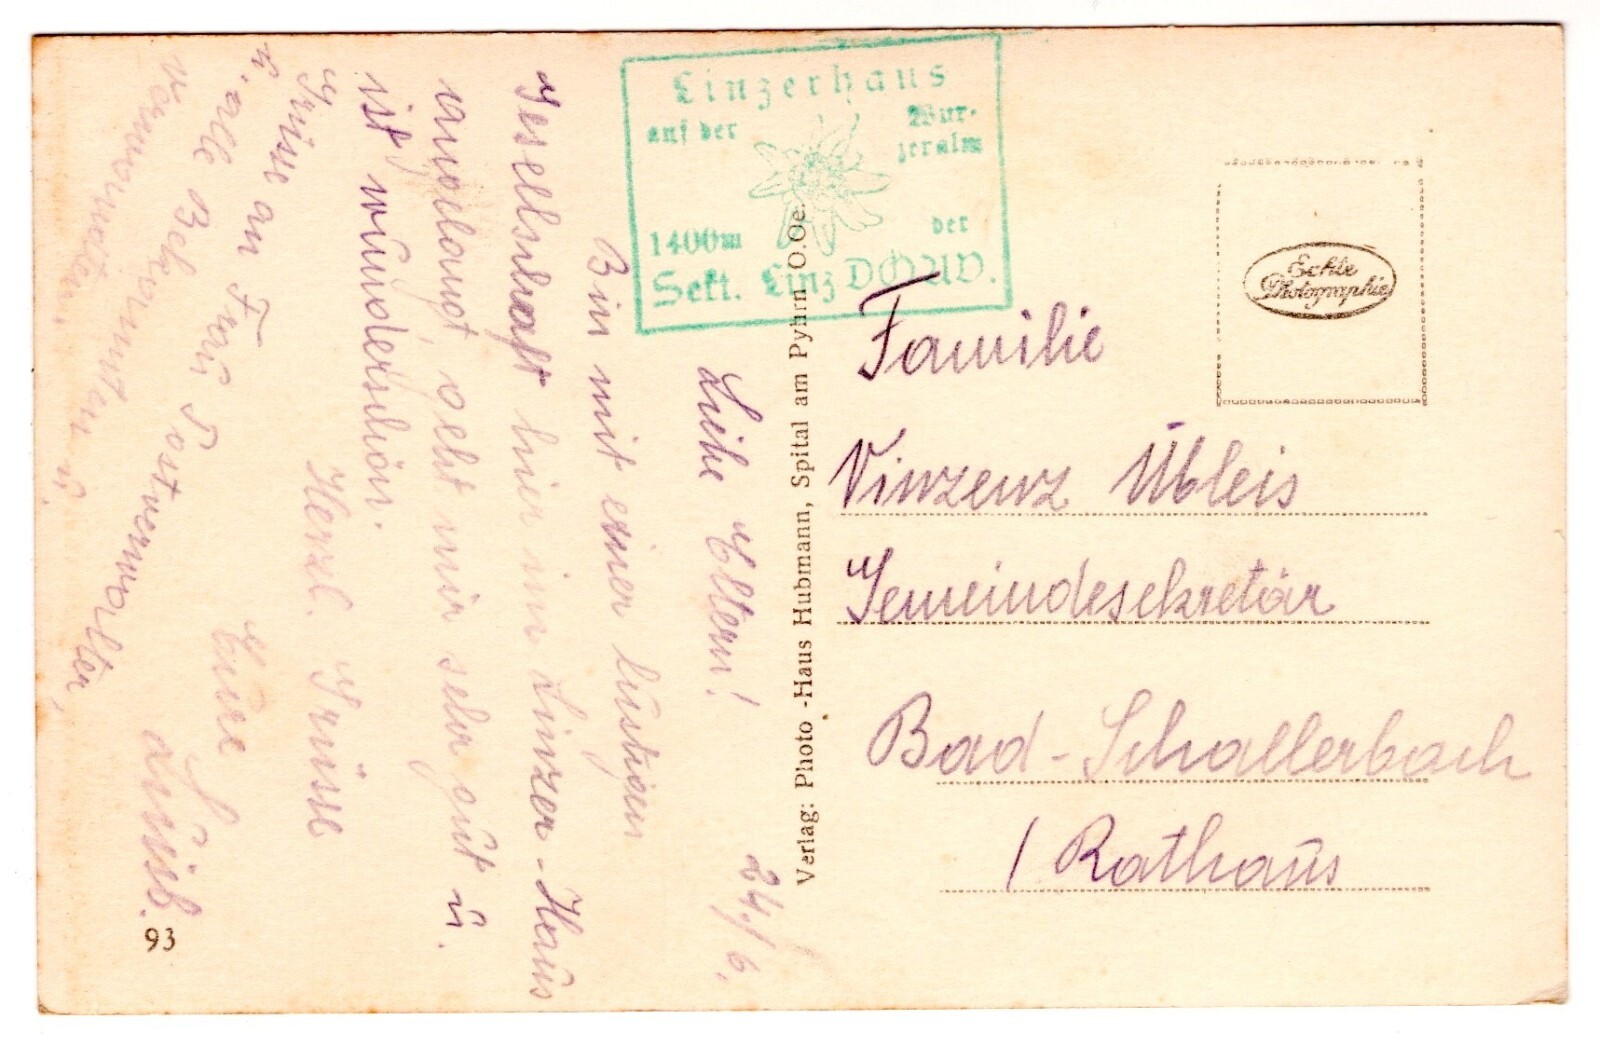 Linzerhaus
auf der Wur-
zeralm
1400m der
Sekt. Linz DÖUAV.
Echte
Photographie
24./6.
Liebe Eltern!
Bin mit einer lustigen
Gesellschaft hier im Linzer-Haus
angelangt, geht mir sehr gut u.
ist wunderschön.
Herzl. Grüsse
Eure
Luisb.
Grüsse an Frau Postverwalter,
u. alle Bekannten u.
Verwandten.
Familie
Vinzenz Übleis
Gemeindesekretär
Bad-Schallerbach
/ Rathaus
Verlag: Photo -Haus Hubmann, Spital am Pyhrn O.Oe.
93